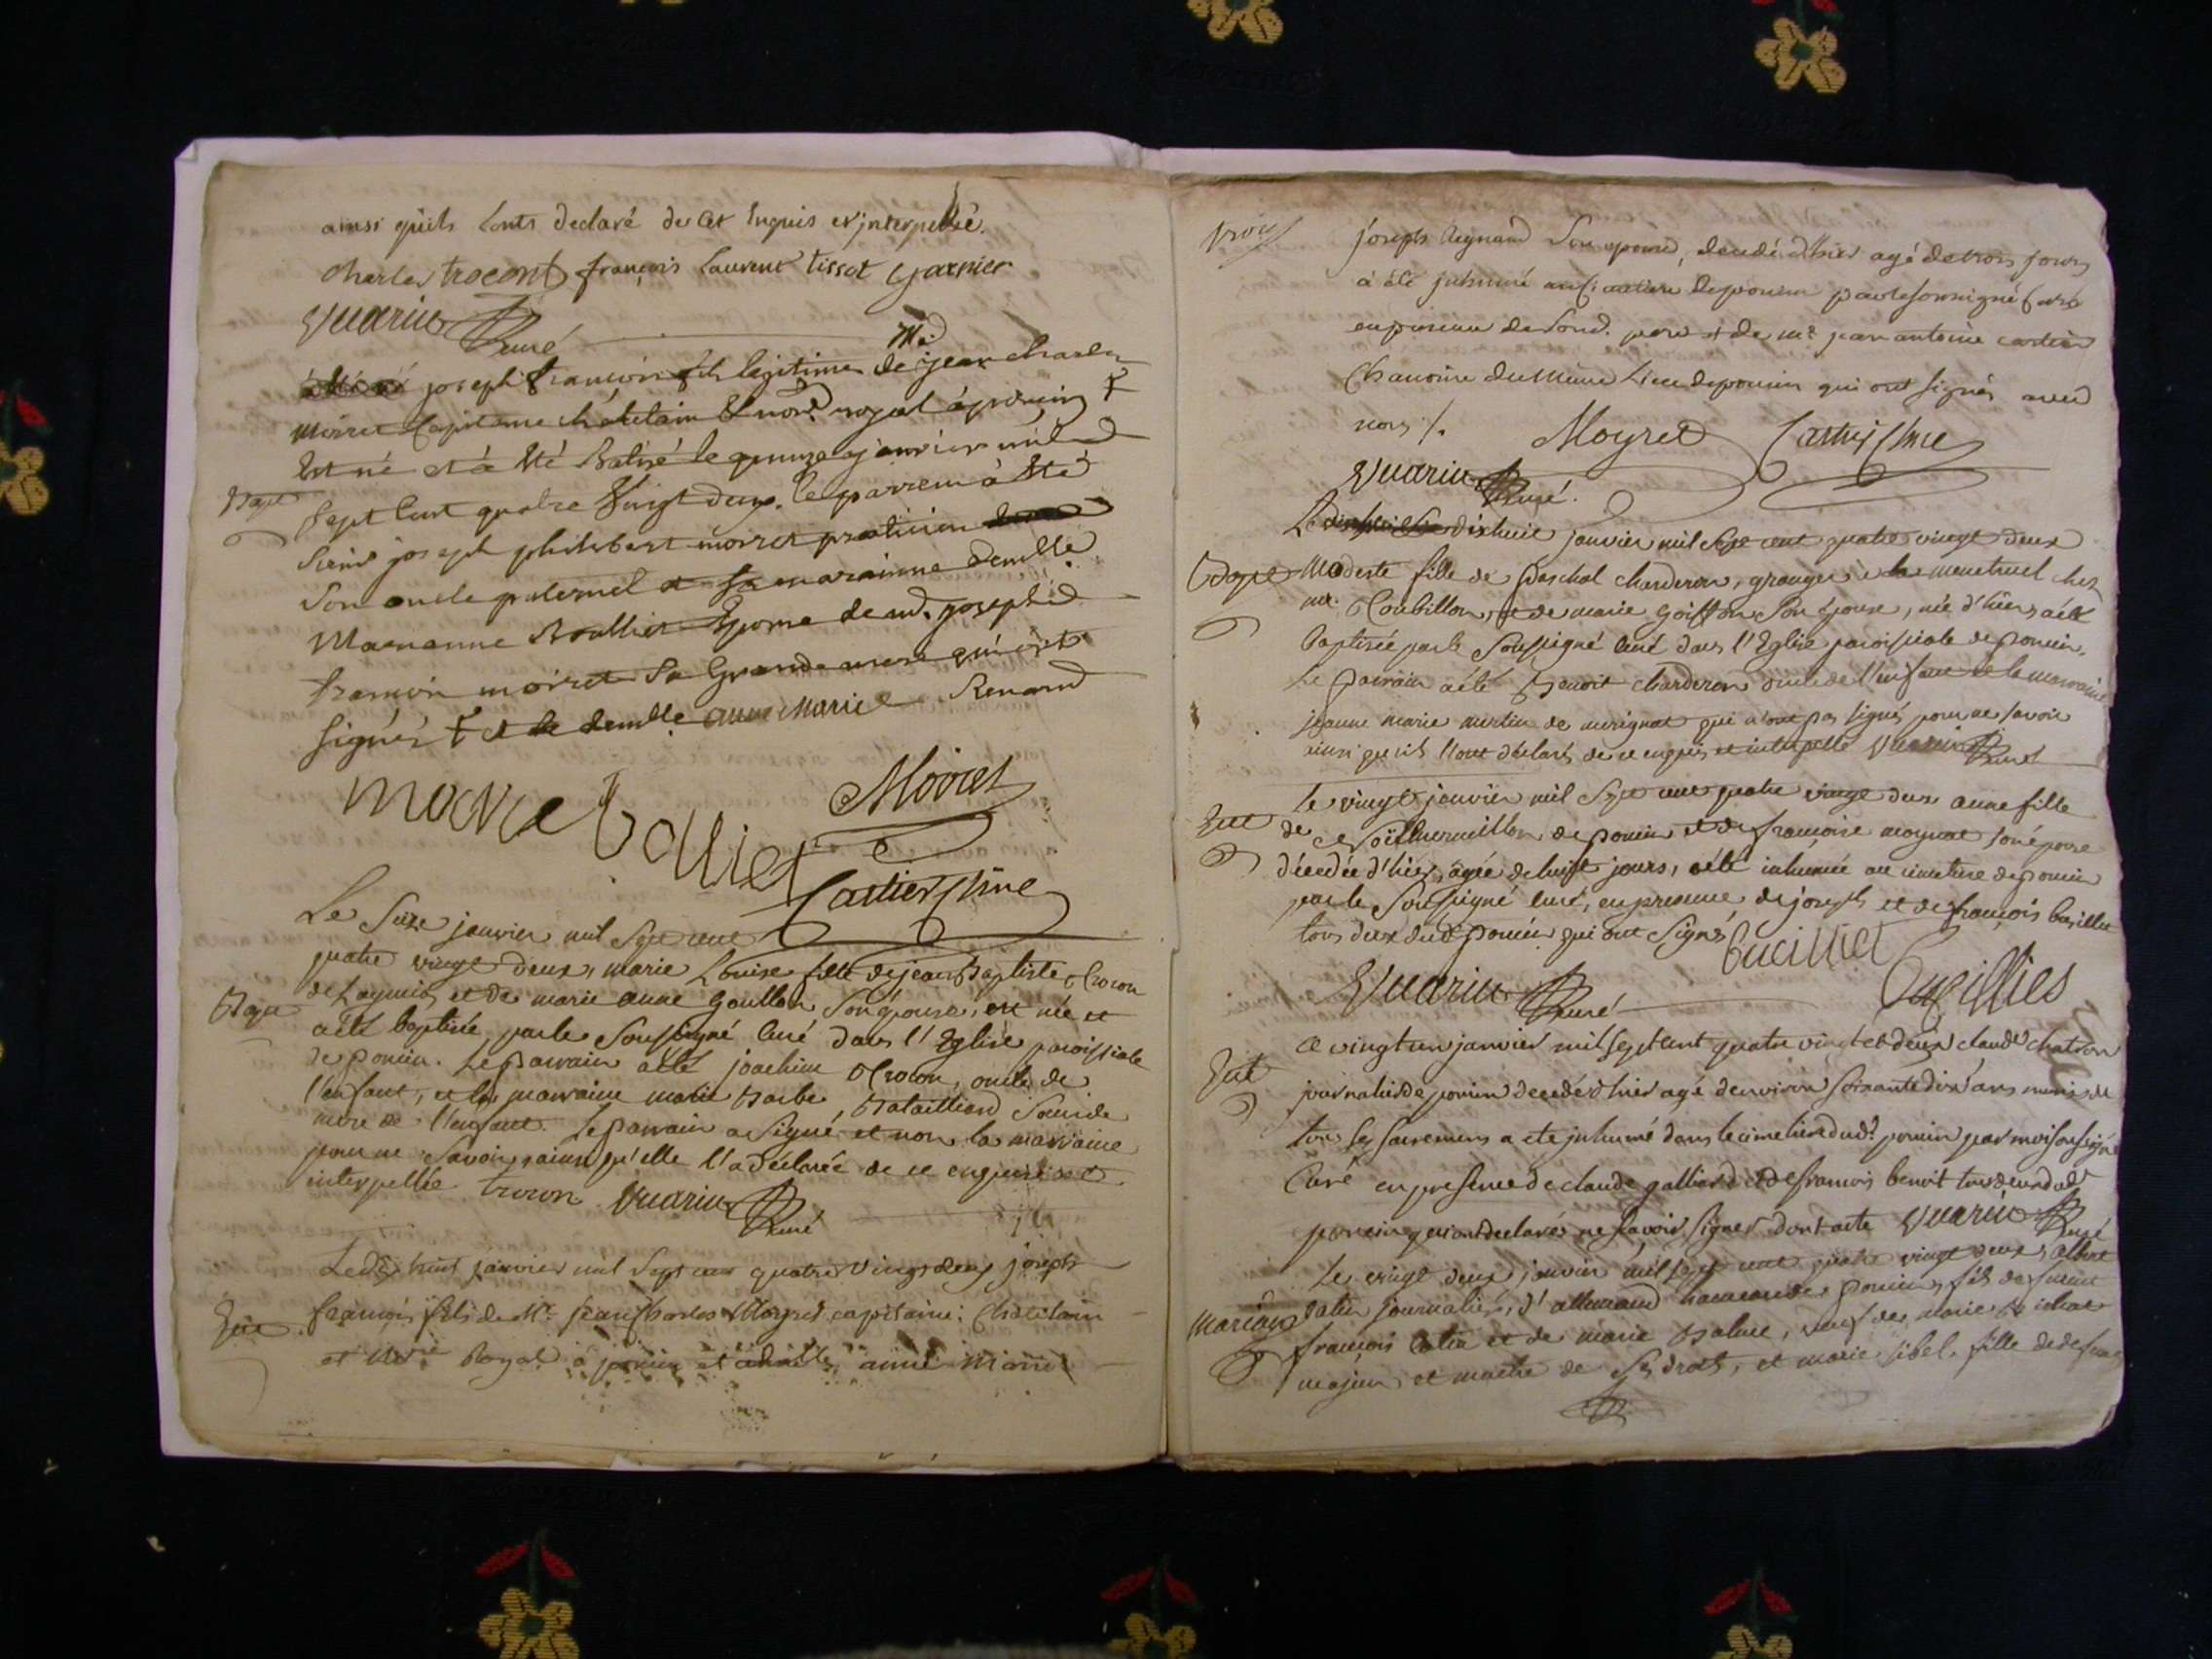 ainsi qu'ils l'ont declaré de cet enquis et interpellé.
charles trocont françois laurent tissot garnier
Vuarin Curé
Me
joseph françois fils legitime de jean charles
moiret Capitaine châtelain & nore royal à poncin †
Est né et a été Batisé le quinze janvier mil
Bapt
Sept Cent quatre Vingt deux. le parrein à été
Sieur joseph philibert moiret praticien
Son oncle paternel et Sa marainne demlle
Marianne Boullier Epouse de md. joseph
francois moiret Sa Grande mere qui ont
signés † et de demlle anne Marie Renand
marie bollier
Moiret
Cartier Chne
Le Seize janvier mil Sept cent
quatre vingt deux, marie Louise fille de jean Baptiste Trocon
de et de marie anne Goullon, Son épouse, est née et
Bapt
a été baptisée, par le Soussigné Curé dans l'Eglise paroissiale
de poncin. Le parrain a été joachim Trocon, oncle de
l'enfant, et la marraine marie Barbe Bataillard
mere de l'enfant. Le parrain a Signé et non la marraine
pour ne Savoir, ainsi qu'elle l'a déclarée de ce enquise et
interpellée trocon Vuarin Curé
Le dix huit janvier mil Sept cent quatre Vingt deux joseph
Ent
françois fils de Mr. jean Charles Moyret capitaine Chatelain
et Royal à poncin et anne Marie
joseph Reynand Son epouse, decedé d'hier agé de trois jours
à été inhumé au Cimetiere de poncin par le soussigné Curé
en presence de Son d. pere et de mr. jean antoine cartier
Chanoine du même Lieu de poncin qui ont signés avec
nous /.
Moyret Cartier Chne
Vuarin Curé.
Le dixhuit janvier mil Sept cent quatre vingt deux
Bapt
Modeste fille de paschal charderon, granger à chez
mr. Coubillon, et de marie Goiffon Son épouse, née d'hier, a été
baptisée par le Soussigné Curé dans l'Eglise paroissiale de poncin.
Le parrain a été Benoit charderon oncle de l'enfant et la marraine
jeanne marie mertin de merignat qui n'ont pas signés pour ne Savoir
ainsi qu'ils l'ont déclarés de ce enquis et interpellé Vuarin Curé
Le vingt janvier mil Sept cent quatre vingt deux anne fille
Ent
de de poncin et de francoise moynat son épouse
décedée d'hier, âgée de huit jours, a été inhumée au cimetiere de poncin
par le Soussigné Curé, en presence de joseph et de françois
tous deux dud. poncin qui ont Signé
Vuarin Curé
Ce vingt un janvier mil sept cent quatre vingt et deux claude chatron
Ent
journalier de poncin decedé d'hier agé d'environ soixante dix ans munis de
tous les sacremens a ete inhumé dans le cimetiere dud. poncin par moi soussigné
Curé en presence de claude galliard et de francois benoit tous deux dud.
poncin qui ont declarés ne scavoir signer dont acte Vuarin Curé
Le vingt deux janvier mil sept cent quatre vingt deux, albert
Mariage
journalier, d'allemand poncin, fils de
françois et de marie Balme, veuf de marie
majeur, et maitre de Ses droits, et marie fille de defunt